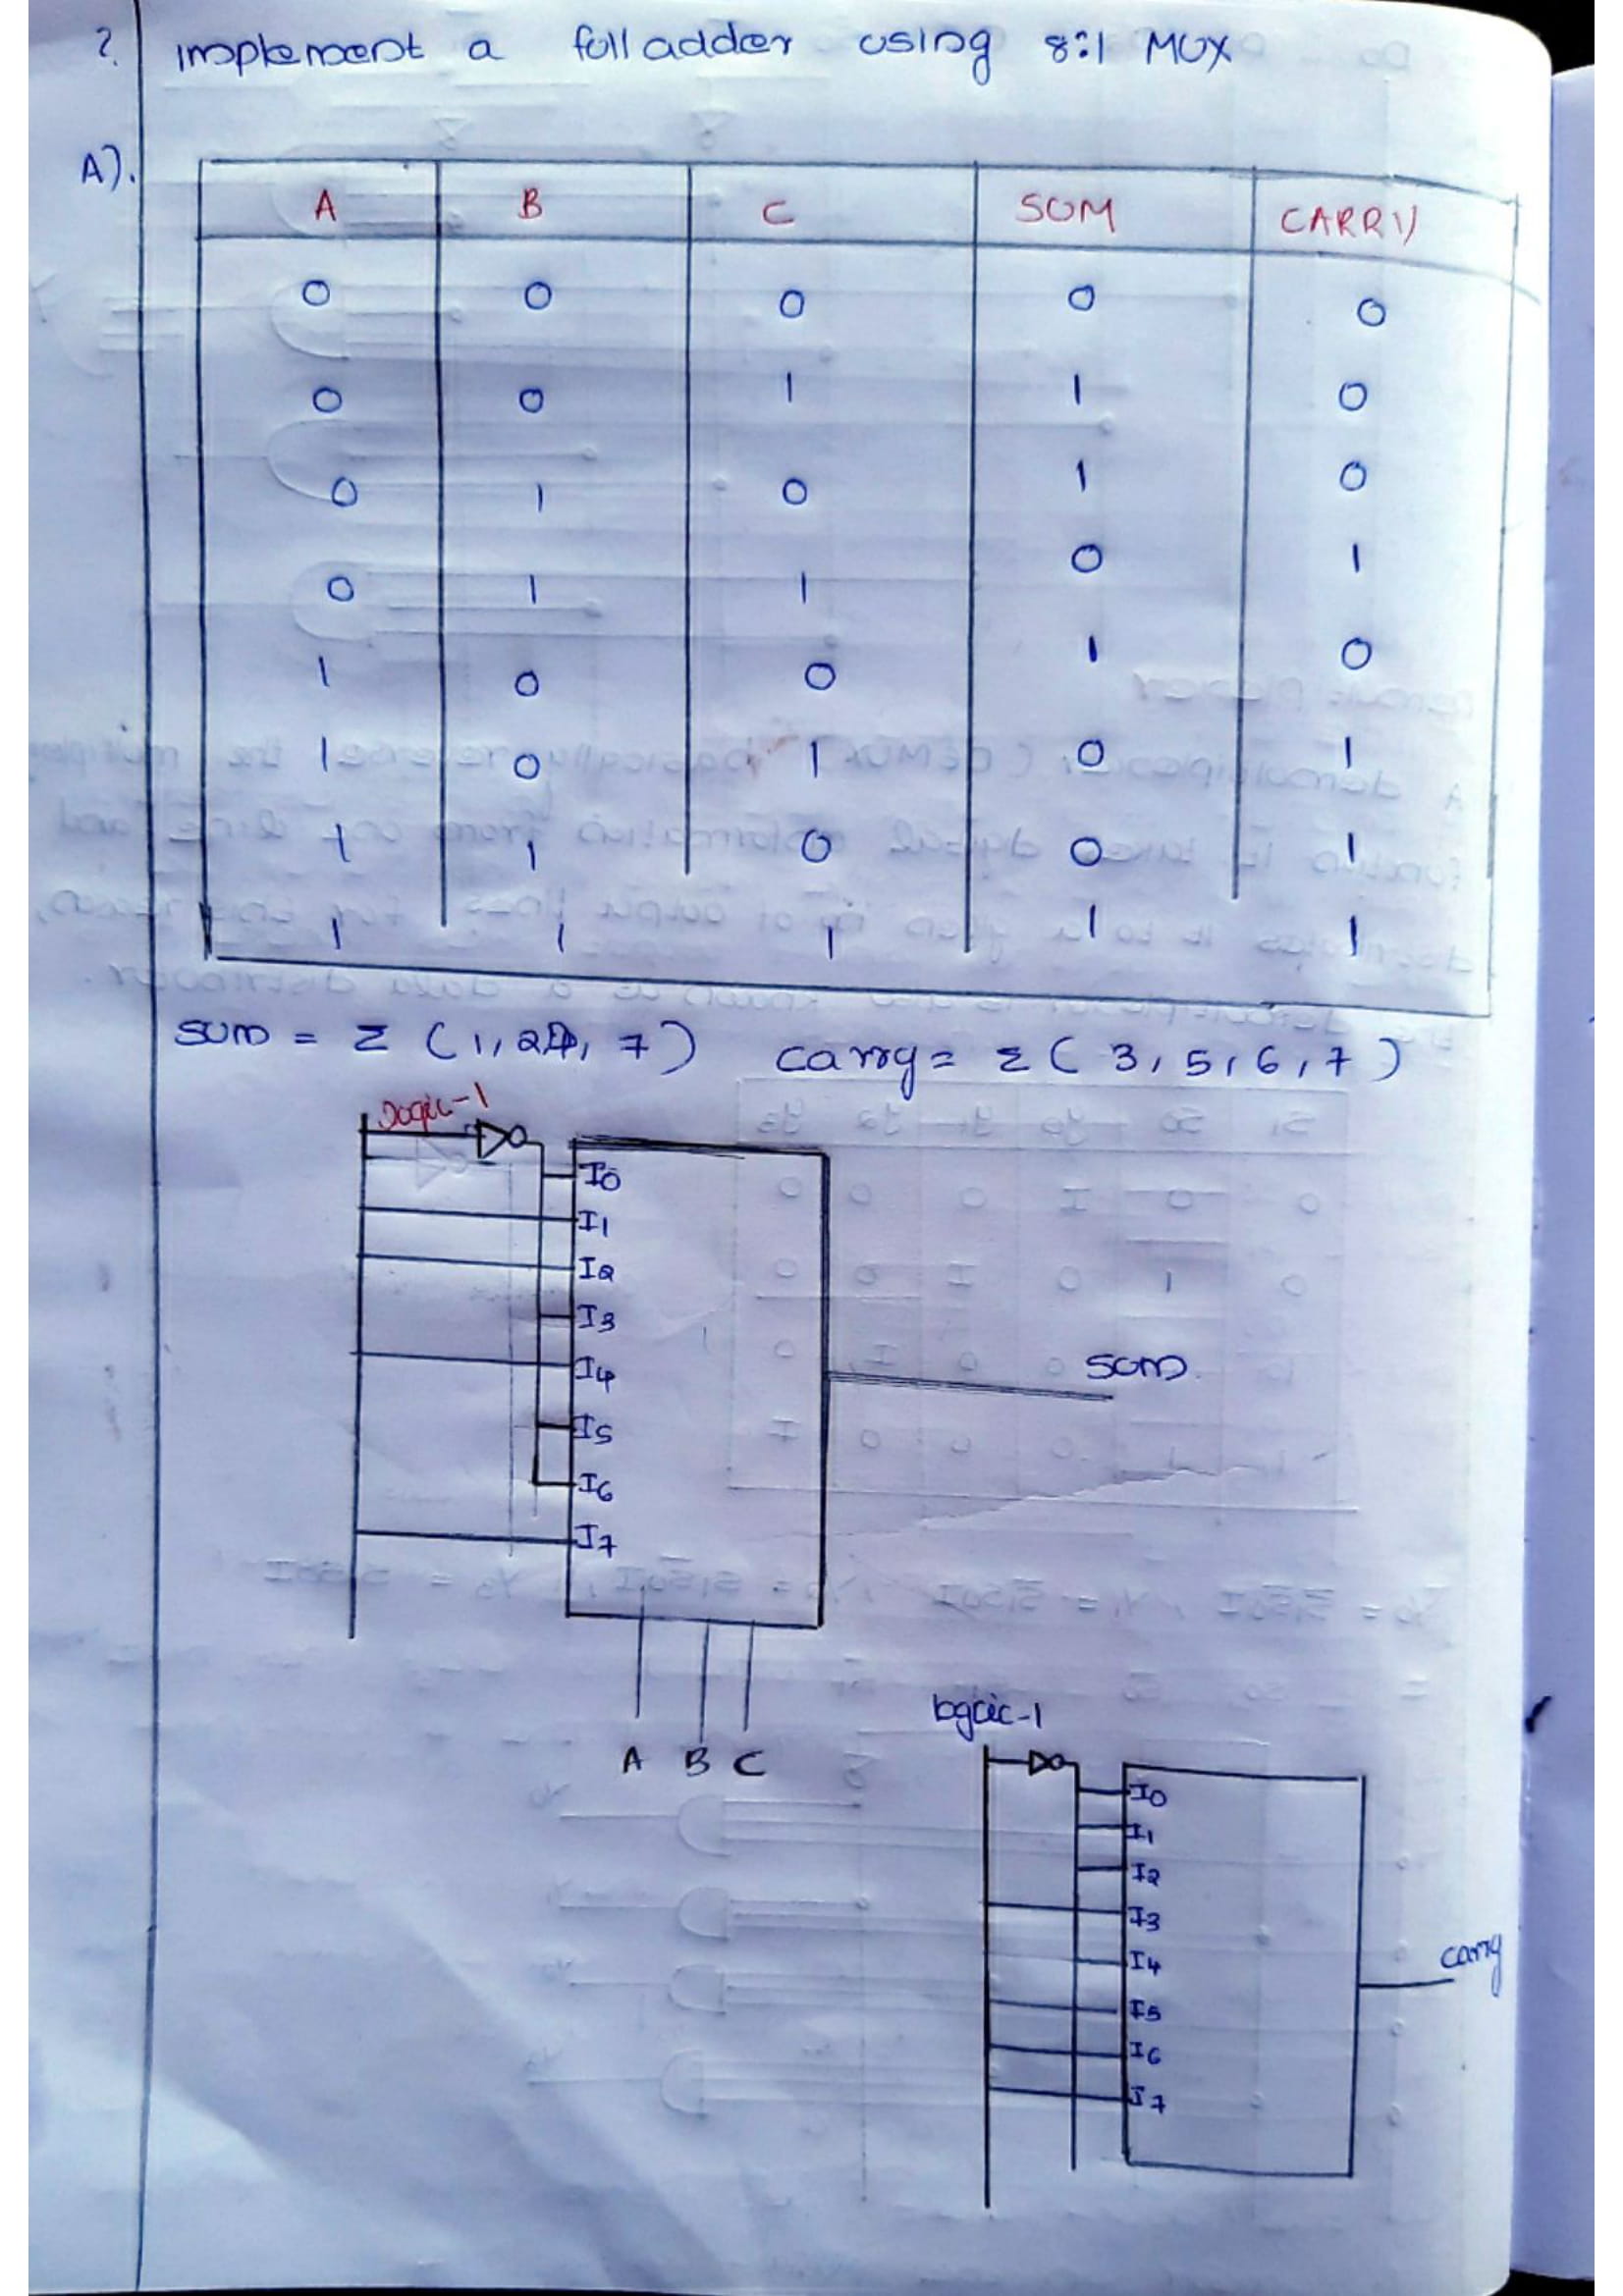 ? implement a full adder using 8:1 MUX
A).
A B C SUM CARRY
0 0 0 0 0
0 0 1 1 0
0 1 0 1 0
0 1 1 0 1
1 0 0 1 0
1 0 1 0 1
1 1 0 0 1
1 1 1 1 1
sum = Σ (1, 2 4, 7) carry = Σ ( 3, 5, 6, 7 )
logic-1
I0
I1
I2
I3
I4
I5
I6
I7
sum
A B C
logic-1
I0
I1
I2
I3
I4
I5
I6
I7
carry